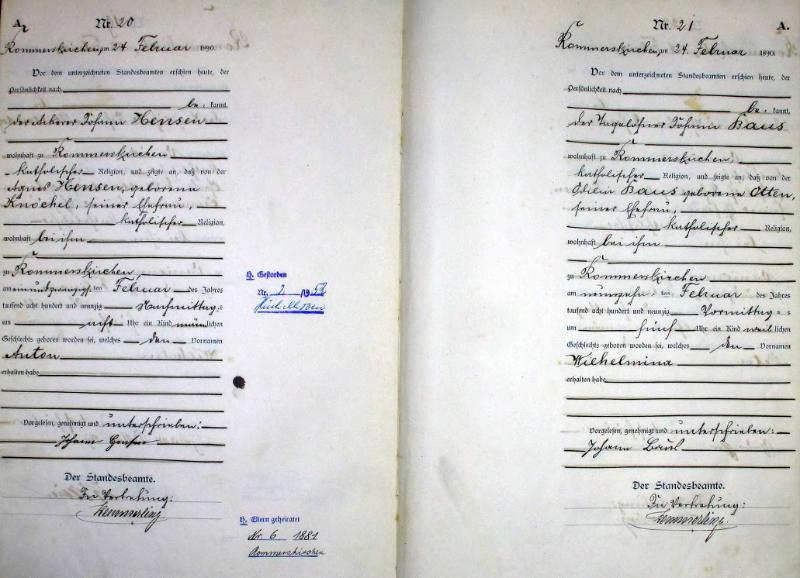 A2
Nr. 20
Rommerskirchen, am 24 Februar 1890.
Vor dem unterzeichneten Standesbeamten erschien heute, der
Persönlichkeit nach
be- kannt,
der Ackerer Johann Hensen
wohnhaft zu Rommerskirchen,
katholischer Religion, und zeigte an, daß von der
Agnes Hensen, geborenen
Knöchel, seiner Ehefrau,
katholischer Religion,
wohnhaft bei ihm
zu Rommerskirchen,
am einundzwanzigsten Februar des Jahres
tausend acht hundert und neunzig Nachmittag-s
um acht Uhr ein Kind männlichen
Geschlechts geboren worden sei, welches den Vornamen
Anton
erhalten habe
Vorgelesen, genehmigt und unterschrieben:
Johann Hensen
Der Standesbeamte.
In Vertretung:
H. Gestorben
Nr. 2 /19
H. Eltern geheiratet
Nr. 6 1881
Rommerskirchen
Nr. 21
A.
Rommerskirchen, am 24. Februar 1890.
Vor dem unterzeichneten Standesbeamten erschien heute, der
Persönlichkeit nach
be- kannt,
der Tagelöhner Johann Baus
wohnhaft zu Rommerskirchen,
katholischer Religion, und zeigte an, daß von der
Baus geborene Otten,
seiner Ehefrau,
katholischer Religion,
wohnhaft bei ihm
zu Rommerskirchen
am neunzehn ten Februar des Jahres
tausend acht hundert und neunzig Vormittag-s
um fünf Uhr ein Kind weiblichen
Geschlechts geboren worden sei, welches den Vornamen
Wilhelmina
erhalten habe
Vorgelesen, genehmigt und unterschrieben:
Johann
Der Standesbeamte.
In Vertretung: